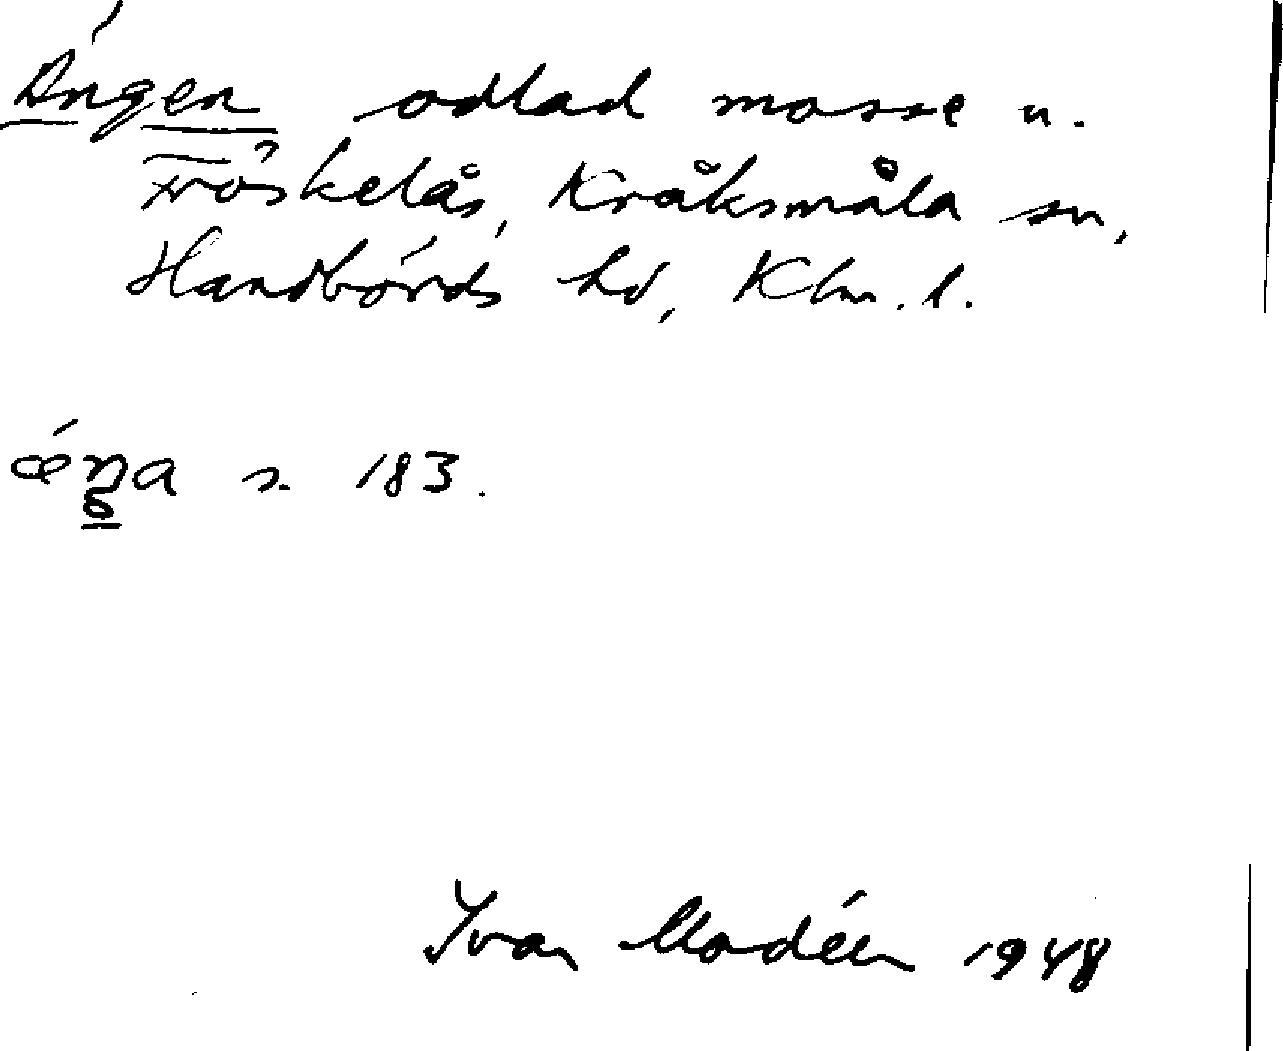 Ängen odlad mosse u.
Fröskelås, Kråksmåla sn,
Handbörds hd, Klm. l.
ǽŋa s. 183.
Ivar Modéer 1948